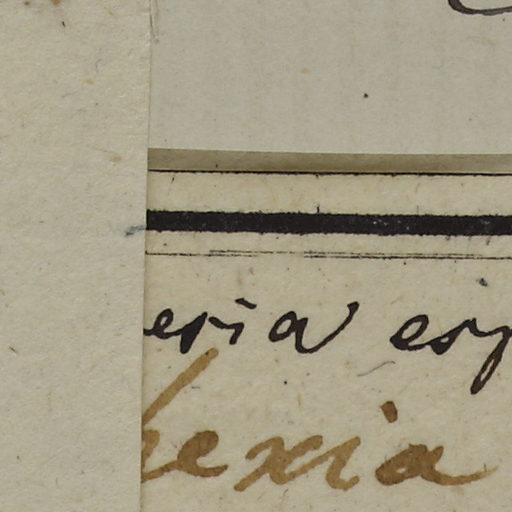 eria esp
hexia